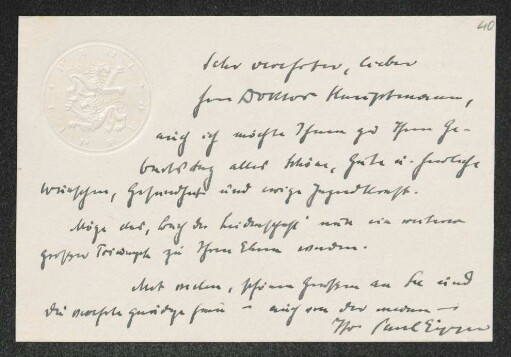 40
Sehr verehrter, lieber
Herr Doktor Hauptmann,
auch ich möchte Ihnen zu Ihrem Ge-
burtstag alles Schöne, Gute u. herrliche
wünschen, Gesundheit und ewige Jugendkraft.
Möge das „Buch der Leidenschaft“ nur ein weiterer
großer Triumph zu Ihren Ehren werden.
Mit vielen, schönen Grüßen an Sie und
die verehrte gnädige Frau – auch von der meinen –
Ihr Paul Eipper